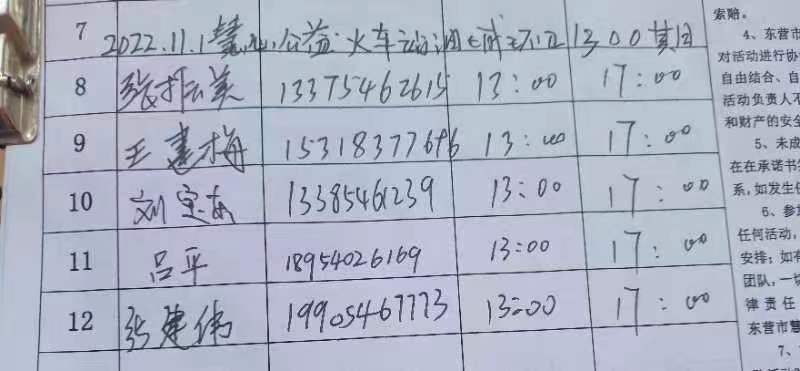 7
2022.11.1 慧心公益 火车站
8 张 美 13375462615 13:00 17:00
9 王建梅 15318377696 13:00 17:00
10 刘宝东 13385461239 13:00 17:00
11 吕平 18954026169 13:00 17:00
12 张建伟 19905467773 13:00 17:00
索赔。
4、东营市
对活动进行协
自由结合、自
活动负责人不
和财产的安全
5、未成
在在承诺书
系,如发生
6、参
任何活动,
安排;如有
团队,一切
律责任
东营市慧
7、